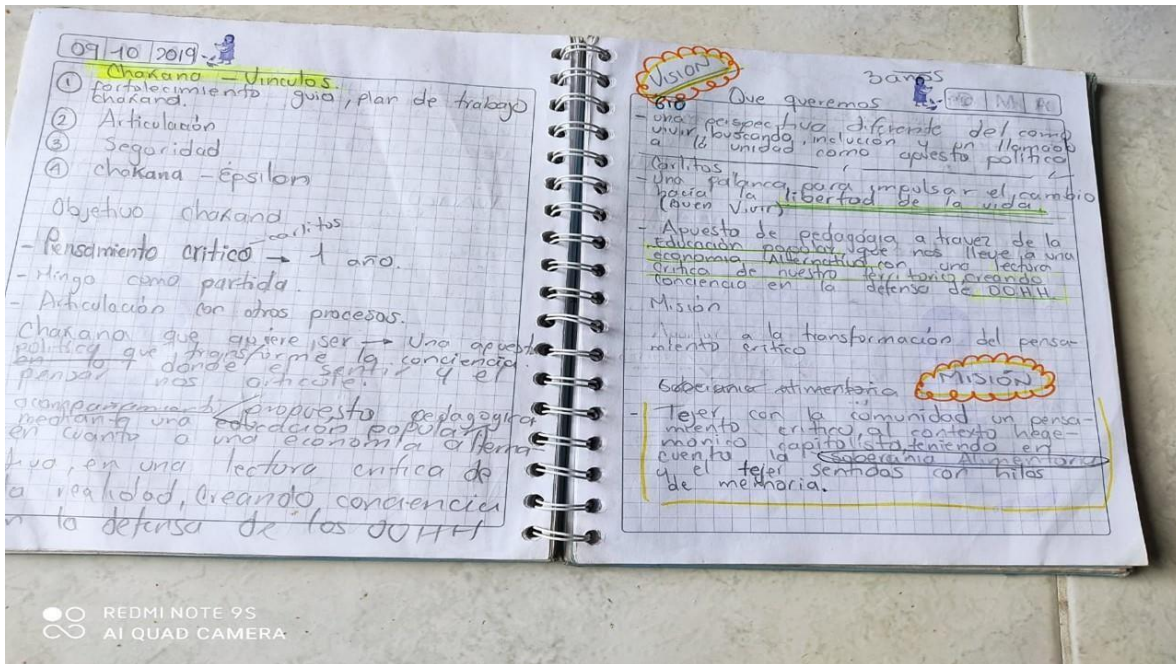 09 10 2019
Chakana - Vinculos.
① fortalecimiento guia, plan de trabajo
chakana.
② Articulación
③ Seguridad
④ chakana - Épsilon
Objetivo chakana
carlitos
- Pensamiento critico → 1 año.
- Minga como partida.
- Articulación con otros procesos.
chakana que quiere ser → Una apuesta
politica que transforme la conciencia
en donde el sentir y el
pensar nos articule.
acompañamiento propuesta pedagogica
mediante una educación popular
en cuanto a una economia alterna-
tiva, en una lectura critica de
la realidad, creando conciencia
en la defensa de los DDHH
VISIÓN
3 años
Que queremos
- una perspectiva diferente del como
vivir, buscando inclusión y un llamado
a la unidad como apuesta política
Carlitos
- Una palanca para impulsar el cambio
hacia la libertad de la vida.
(Buen Vivir)
- Apuesta de pedagógia a travez de la
Educación popular que nos lleve a una
economia Alternativa con una lectura
critica de nuestro territorio creando
conciencia en la defensa de DDHH.
Misión
a la transformación del pensa-
miento critico
soberania alimentaria
MISIÓN
- Tejer con la comunidad un pensa-
miento critico al contexto hege-
monico capitalista teniendo en
cuenta la soberania Alimentaria
y el tejer sentidas con hilos
de memoria.
REDMI NOTE 9S
AI QUAD CAMERA